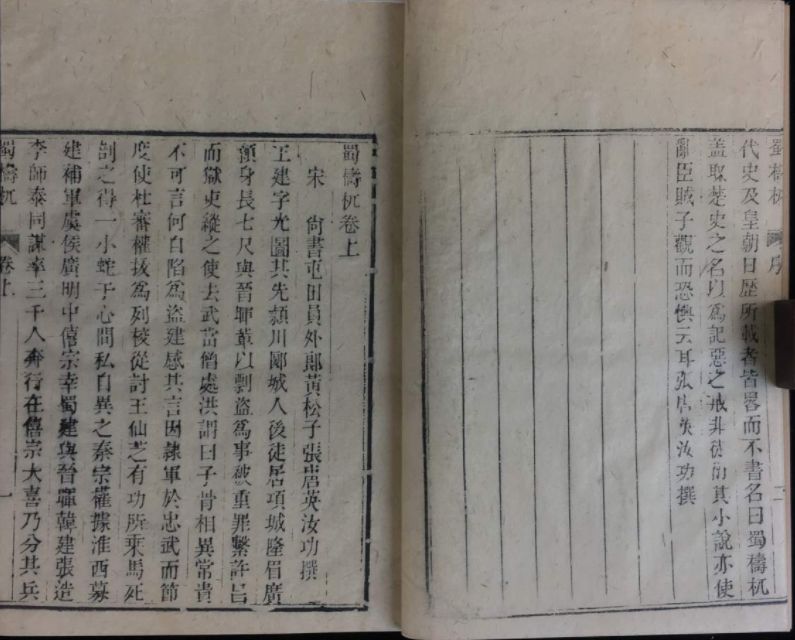 蜀檮杌 序 二
代史及皇朝日歷所載者皆畧而不書名曰蜀檮杌
蓋取楚史之名以爲記惡之戒非徒衒其小說亦使
亂臣賊子觀而恐懼云耳張唐英汝功撰
蜀檮杌卷上
宋 尙書屯田員外郎黃松子張唐英汝功撰
王建字光圖其先潁川郾城人後徙居項城隆眉廣
顙身長七尺與晉暉輩以剽盜爲事被重罪繫許昌
而獄吏縱之使去武當僧處洪謂曰子骨相異常貴
不可言何自陷爲盜建感其言因隸軍於忠武而節
度使杜審權拔爲列校從討王仙芝有功所乘馬死
剖之得一小蛇于心間私自異之秦宗權據淮西募
建補軍虞侯廣明中僖宗幸蜀建與晉暉韓建張造
李師泰同謀率三千人奔行在僖宗大喜乃分其兵
蜀檮杌 卷上 一